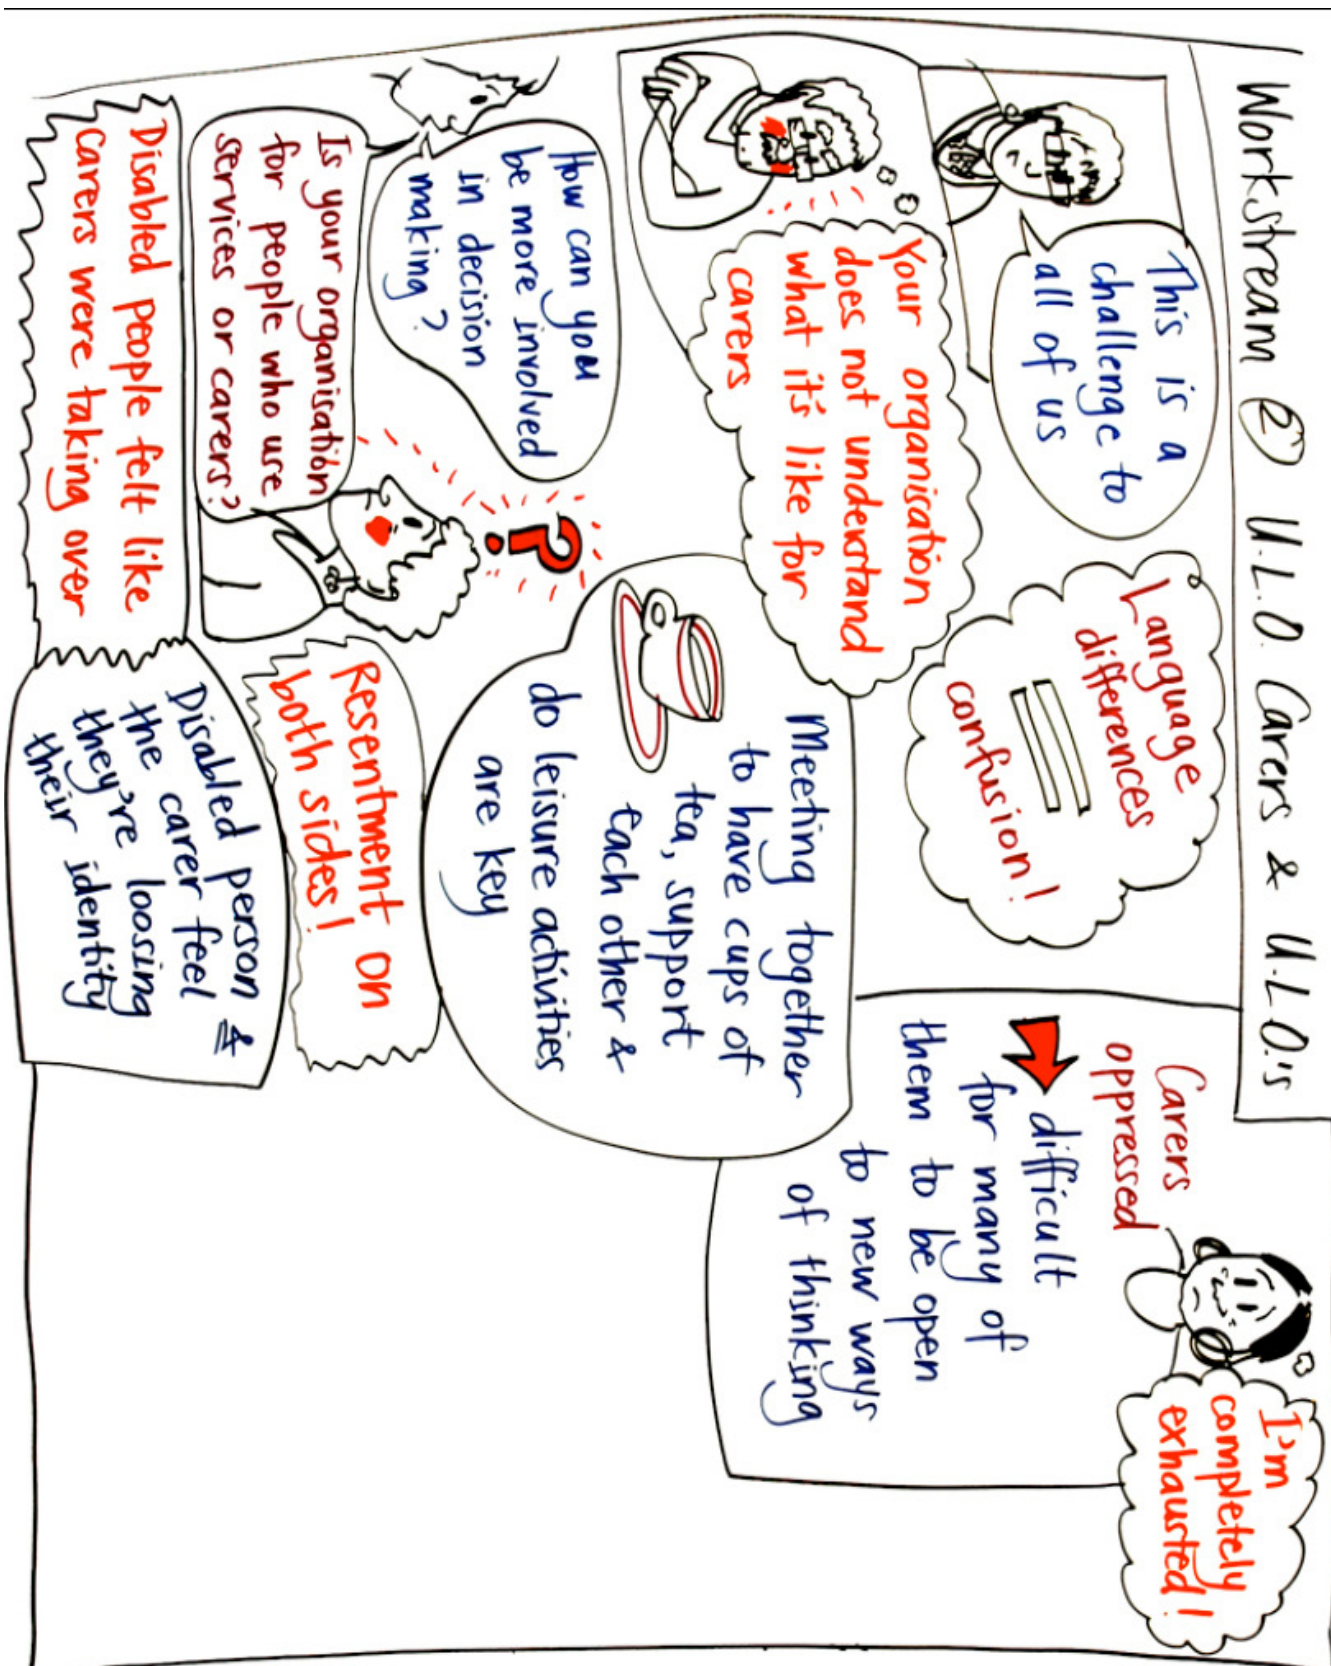 Workstream ② U.L.O. Carers & U.L.O.'s
This is a
challenge to
all of us
Language
differences
=
confusion!
Carers
oppressed
difficult
for many of
them to be open
to new ways
of thinking
I'm
completely
exhausted!
Your organisation
does not understand
what it's like for
carers
Meeting together
to have cups of
tea, support
each other &
do leisure activities
are key
How can you
be more involved
in decision
making?
?
Is your organisation
for people who use
services or carers?
Resentment on
both sides!
Disabled people felt like
carers were taking over
Disabled person &
the carer feel
they're loosing
their identity